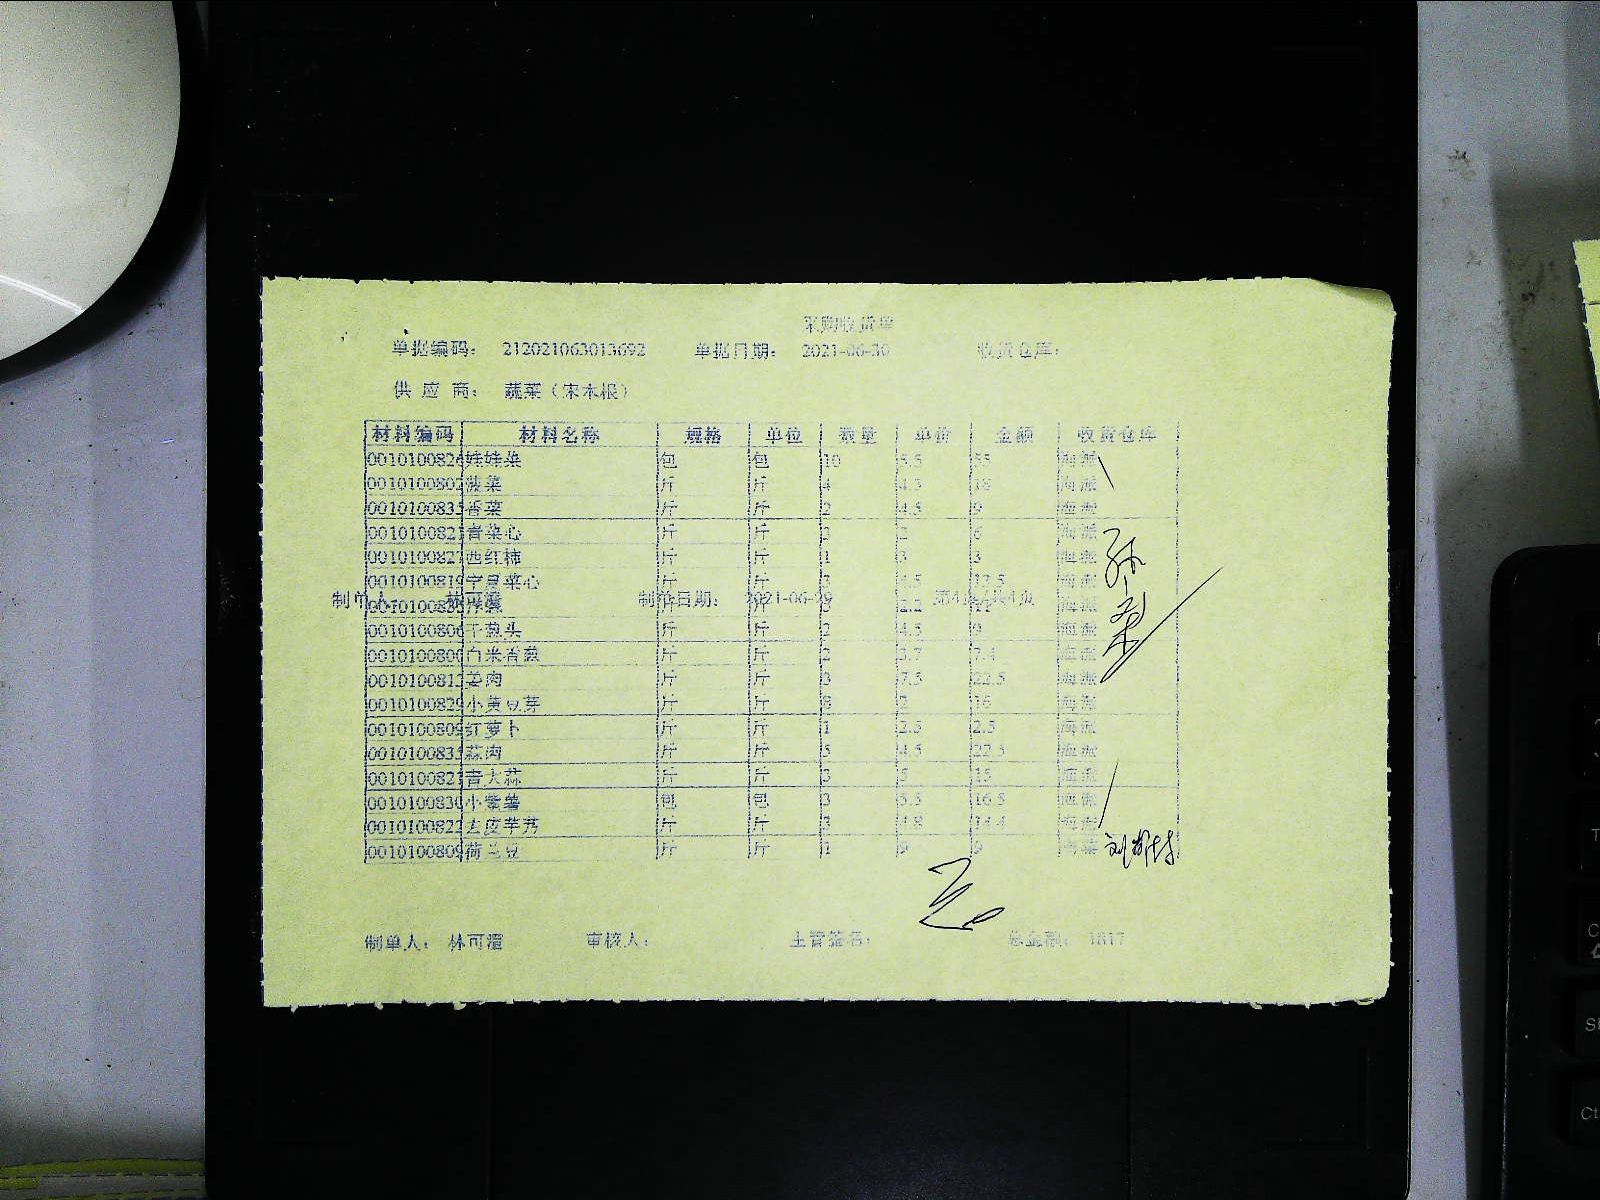 采购收货单
单据编码： 212021063013692 单据日期： 2021-06-30 收货仓库：
供 应 商： 蔬菜（宋本根）
材料编码 材料名称 规格 单位 数量 单价 金额 收货仓库
0010100826 娃娃菜 包 包 10 5.5 55 海派
0010100802 菠菜 斤 斤 4 4.5 18 海派
0010100835 香菜 斤 斤 2 4.5 9 海派
0010100821 青菜心 斤 斤 3 2 6 海派
0010100827 西红柿 斤 斤 1 3 3 海派
0010100819 菜心 斤 斤 3 4.5 13.5 海派
制单人： 林可湄 制单日期： 2021-06-29 第4页/共4页
斤 斤 5 2.2 11 海派
0010100806 干葱头 斤 斤 2 4.5 9 海派
0010100800 白米香葱 斤 斤 2 3.7 7.4 海派
0010100813 姜肉 斤 斤 3 7.5 22.5 海派
0010100829 小黄豆芽 斤 斤 8 2 16 海派
0010100809 红萝卜 斤 斤 1 2.5 2.5 海派
0010100835 蒜肉 斤 斤 5 4.5 22.5 海派
0010100821 青大蒜 斤 斤 3 5 15 海派
0010100830 小紫薯 包 包 3 5.5 16.5 海派
0010100822 去皮芋艿 斤 斤 3 4.8 14.4 海派
0010100809 荷兰豆 斤 斤 1 9 9
制单人： 林可湄 审核人： 主管签名： 总金额： 1817